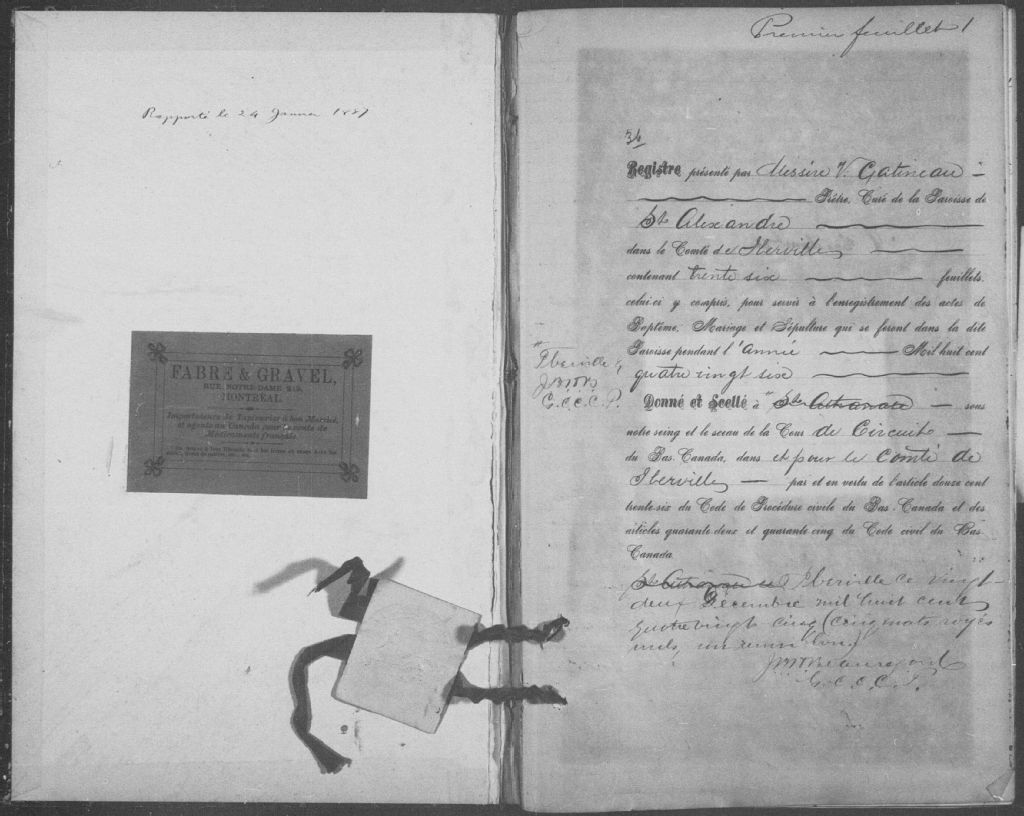 Rapporté le 24 Janvier 1887
FABRE & GRAVEL,
RUE NOTRE-DAME 219,
MONTREAL
Importateurs de Tapisseries à bon Marché,
et agents au Canada pour la vente de
Médicaments français.
Premier feuillet 1
36
Registre présenté par Messire V. Gatineau
Prêtre, Curé de la Paroisse de
St Alexandre
dans le Comté d'Iberville
contenant trente six feuillets,
celui-ci y compris, pour servir à l'enregistrement des actes de
Baptême, Mariage et Sépulture qui se feront dans la dite
Paroisse pendant l'année Mil huit cent
quatre vingt six
"Iberville",
G.C.C.C.P.
Donné et Scellé à " Ste Athanase sous
notre seing et le sceau de la Cour de Circuit
du Bas-Canada, dans et pour le Comté de
Iberville par et en vertu de l'article douze cent
trente-six du Code de Procédure civile du Bas-Canada et des
articles quarante-deux et quarante-cinq du Code civil du Bas
Canada
St Athanase Iberville ce vingt-
deux Décembre mil huit cent
quatre vingt cinq (cinq mots rayés
nuls, un renvoi bon.)